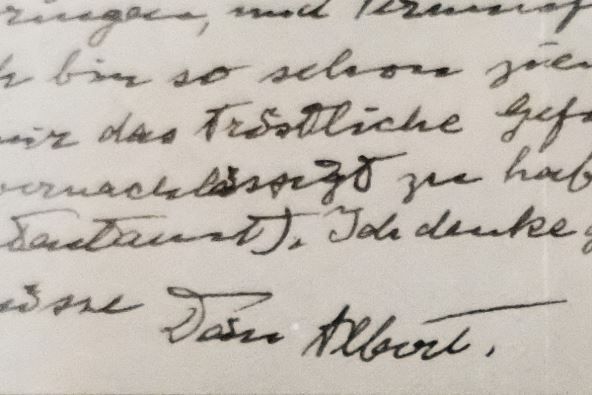 ringen, und
h bin so schon zien
mir das tröstliche Gefü
vernachlässigt zu hab
Ich denke
üsse Dein Albert.